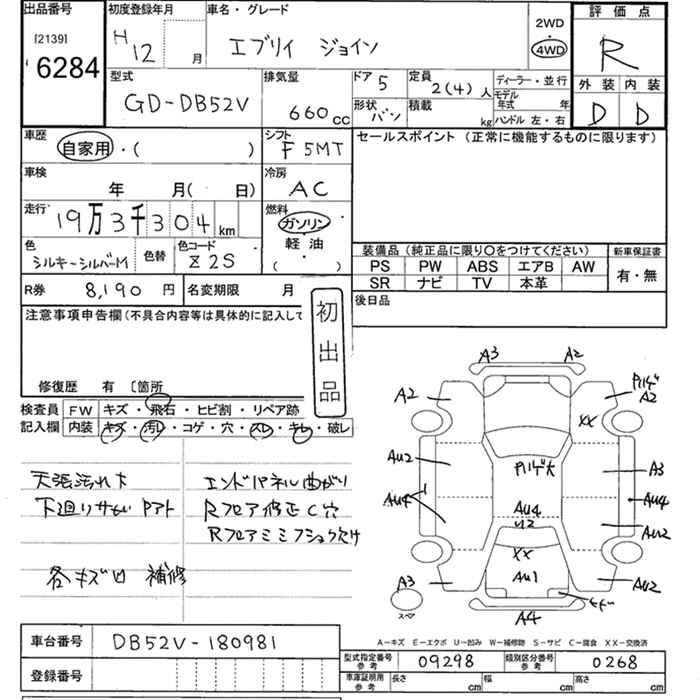 出品番号 初度登録年月 車名・グレード 2WD 評価点
[2139] H 12 月 エブリイ ジョイン 4WD R
6284 型式 排気量 ドア 5 定員 2(4)人 ディーラー・並行 外装 内装
GD-DB52V 660cc 形状 バン 積載 kg モデル年式 年 D D
ハンドル 左・右
車歴 シフト セールスポイント (正常に機能するものに限ります)
自家用・( ) F 5MT
車検 冷房
年 月( 日) AC
走行 燃料
19万3千304km ガソリン
色 色替 色コード 軽油 装備品 (純正品に限り○をつけてください) 新車保証書
シルキーシルバーM Z2S ( ) PS PW ABS エアB AW 有・無
SR ナビ TV 本革
R券 8,190 円 名変期限 月 後日品
注意事項申告欄(不具合内容等は具体的に記入して 初出品
修復歴 有 〔箇所
検査員 FW キズ・飛石・ヒビ割・リペア跡
記入欄 内装 キズ・汚レ・コゲ・穴・スレ・キレ・破レ
天張汚れ大 エンドパネル曲がり
下廻りサビ Pアト Rフロア修正C穴
各キズ凹 補修
A3 A2
A2 A2
XX
Au2 A3
Au4 Au4 Au4
Au2
XX
A3 Au1 Au2
スペア A4
A-キズ E-エクボ U-凹み W-補修跡 S-サビ C-腐食 XX-交換済
車台番号 DB52V-180981 型式指定番号 参考 09298 類別区分番号 参考 0268
登録番号 車庫証明用 参考 長さ cm 幅 cm 高さ cm